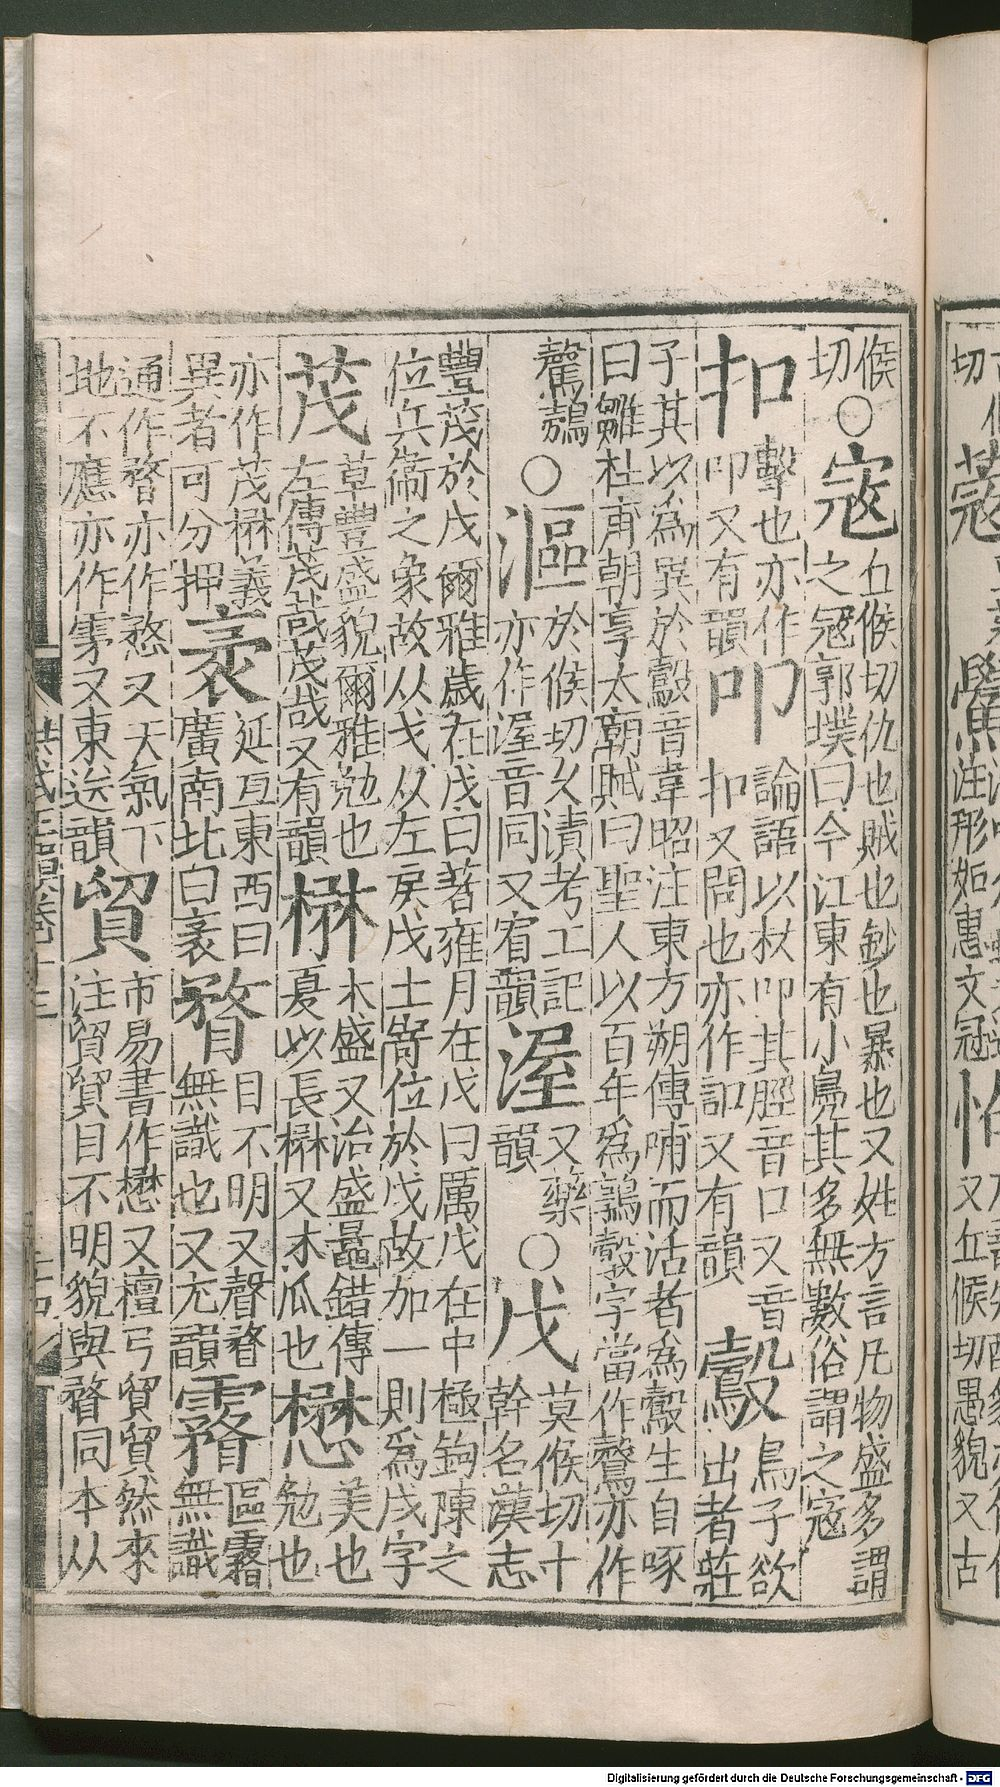 候切○寇丘候切仇也賊也鈔也暴也又姓方言凡物盛多謂之寇郭璞曰今江東有小鳧其多無數俗謂之寇
扣擊也亦作叩又有韻叩論語以杖叩其脛音口又音扣又問也亦作訆又有韻鷇鳥子欲出者莊
子其以為異於鷇音韋昭注東方朔傳哺而活者為鷇生自啄曰雛杜甫朝享太廟賦曰聖人以百年為鶉鷇字當作鷇亦作
鷇鷇○漚於候切久漬考工記亦作渥音同又宥韻渥又藥韻○戊莫候切十幹名漢志
豐茂於戊爾雅歲在戊曰著雍月在戊曰厲戊在中極鉤陳之位兵衛之象故从戈从左戾戊土嵜位於戊故加一則為戊字
茂草豐盛貌爾雅勉也左傳茂哉茂哉又有韻楙木盛又治盛蠶錯傳夏以長楙又木瓜也懋美也勉也
亦作茂楙義異者可分押袤延亙東西曰廣南北曰袤瞀目不明又聲瞀無識也又尤韻霿區霿無識
通作瞀亦作愗又天氣下地不應亦作雺又東送韻貿市易書作懋又檀弓貿貿然來注貿貿目不明貌與瞀同本从
洪武正韻卷十三
Digitalisierung gefördert durch die Deutsche Forschungsgemeinschaft - DFG